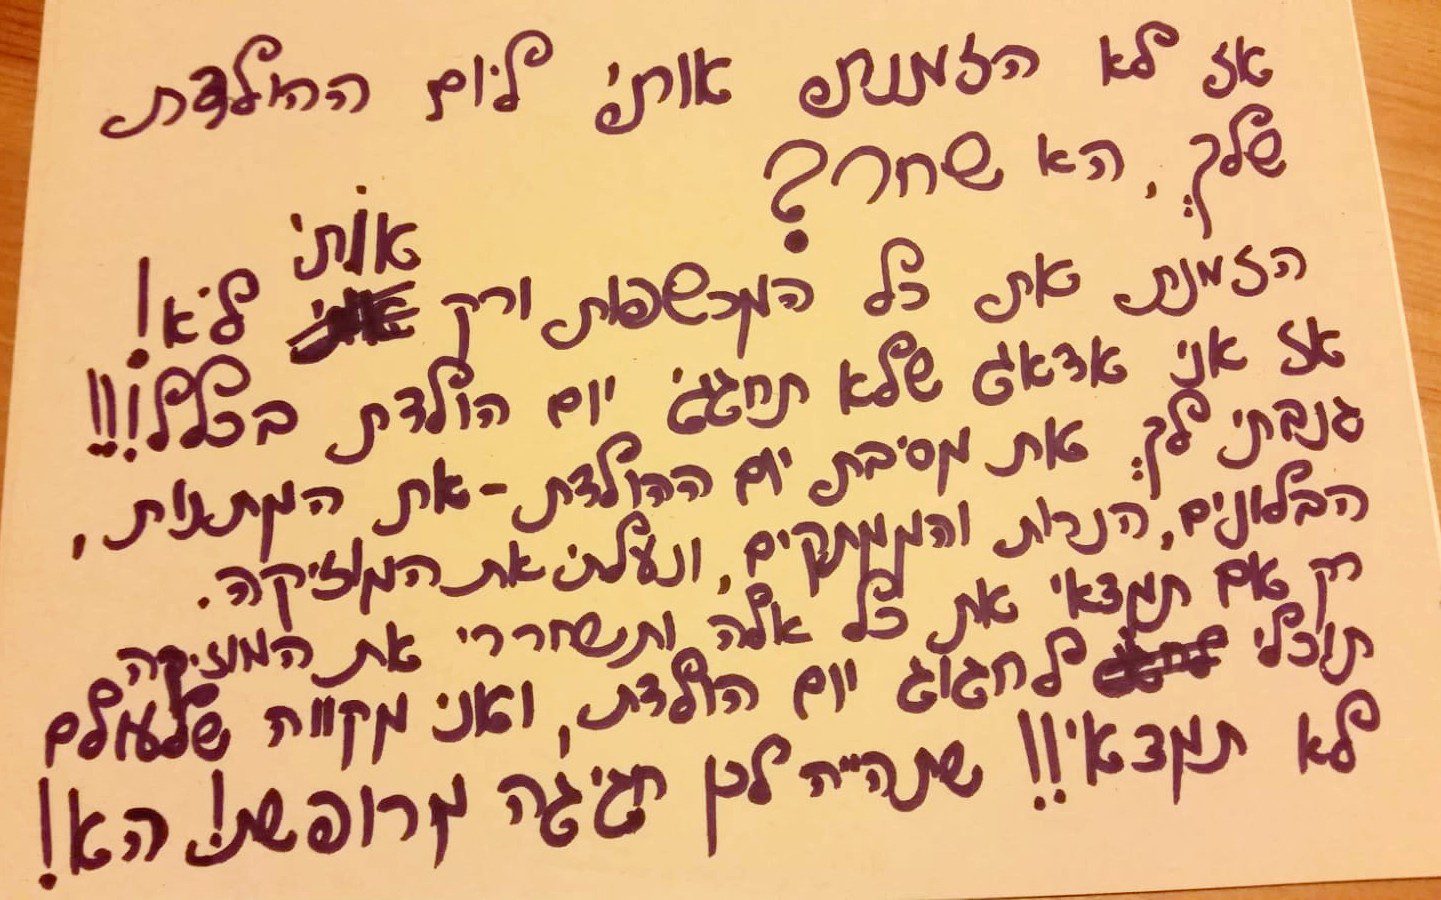 אז לא הזמנת אותי ליום ההולדת
שלך, הא שחר?
הזמנת את כל המכשפות ורק אותי לא!
אז אני אדאג שלא תחגגי יום הולדת בכלל!!!
גנבתי לך את מסיבת יום ההולדת - את המתנות,
הבלונים, הנרות והממתקים, ונעלתי את המוזיקה.
רק אם תמצאי את כל אלה ותשחררי את המוזיקה
תוכלי לחגוג יום הולדת, ואני מקווה שלעולם
לא תמצאי!! שתהייה לכן חגיגה מרופשת! הא!